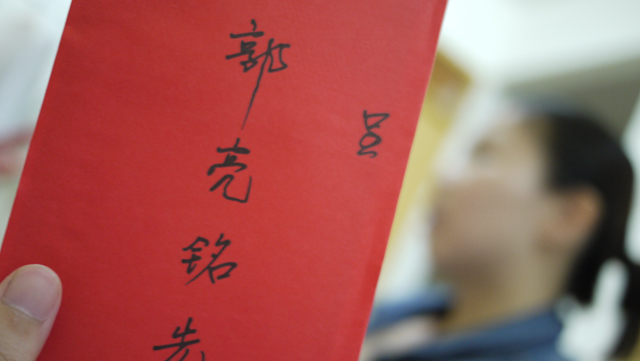 呈
郭亮銘先